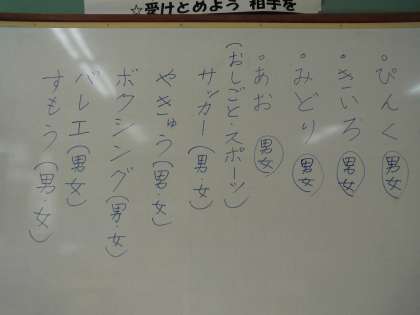 ☆受けとめよう 相手を
。ぴんく 男女
。きいろ 男女
。みどり 男女
。あお 男女
(おしごと・スポーツ)
サッカー(男・女)
やきゅう(男・女)
ボクシング(男・女)
バレエ(男女)
すもう(男・女)